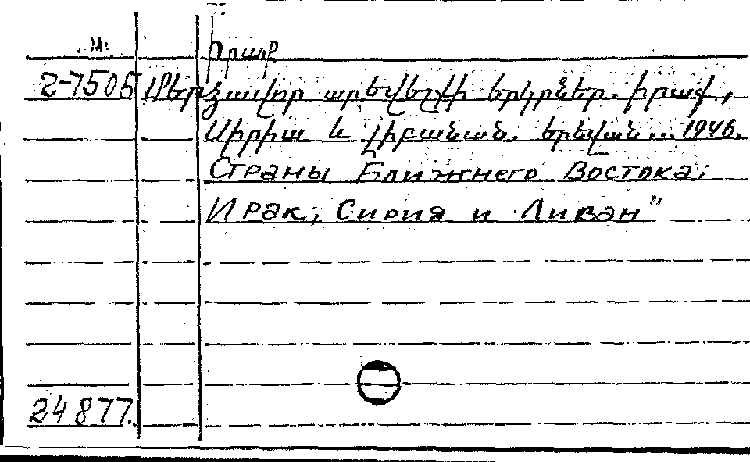 Իրաք
2-7505 Մերձավոր արեվելքի երկրներ. իրաք,
Սիրիա և լիբանան. երևան... 1946.
Страны Ближнего Востока;
Ирак, Сирия и Ливан"
24877.